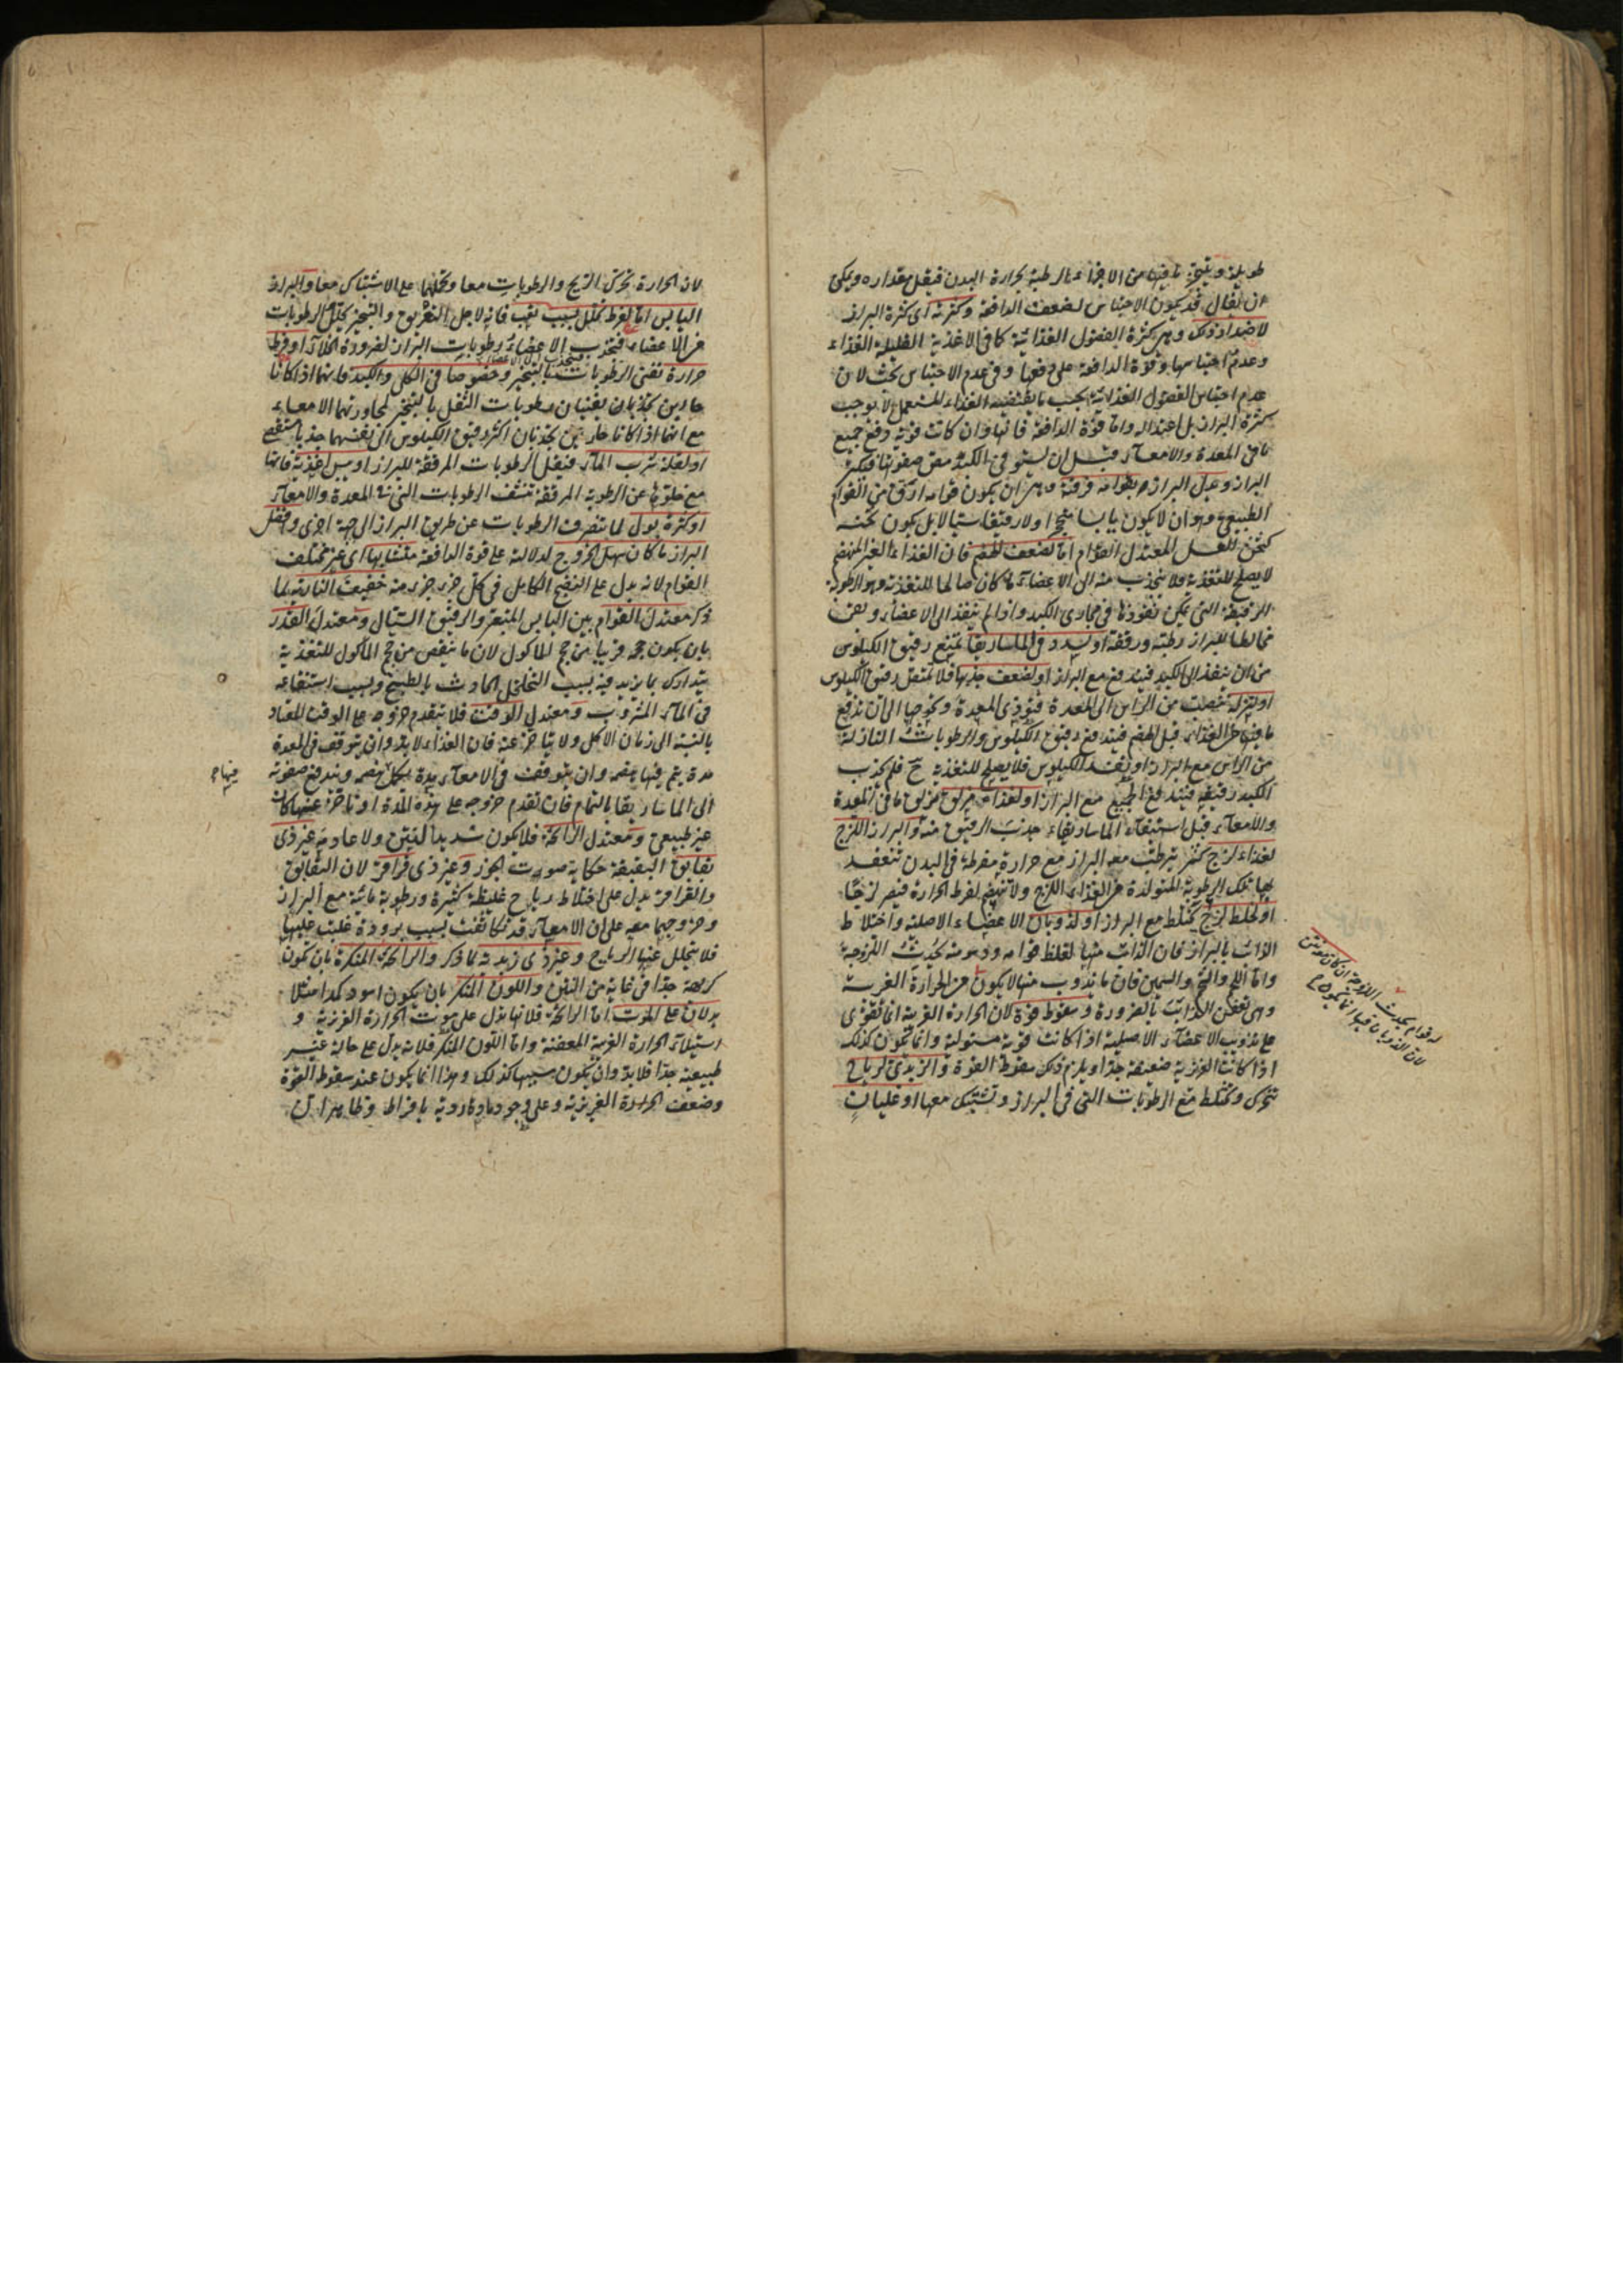 طويلة ويتبخر ما فيها من الاجزاء الرطبة بحرارة البدن فيقل مقداره ويمكن
ان يقال قد يكون الاحتباس لضعف الدافعة وكثرته اى كثرة البراز
لاضداد ذلك وهى كثرة الفضول الغذائية كما فى الاغذية القليلة الغذاء
وعدم احتباسها وقوة الدافعة على دفعها وفى عدم الاحتباس بحث لان
عدم احتباس الفضول الغذائية بحسب ما يقتضيه الغذاء المستعمل لا يوجب
كثرة البراز بل اعتداله واما قوة الدافعة فانها وان كانت قوية دفع جميع
ما فى المعدة والامعاء قبل ان يستوفى الكبد مص صفوتها فيكثر
البراز ويدل البراز بقوامه فرقته وهى ان يكون قوامه ارق من القوام
الطبيعى وهو ان لا يكون يابسا ولا رقيقا سيالا بل يكون ثخنه
كثخن العسل المعتدل القوام اما لضعف الهضم فان الغذاء الغير المنهضم
لا يصلح للتغذية فلا ينجذب منه الى الاعضاء ما كان صالحا للتغذية وهو الرطوبة
الرقيقة التى يمكن نفوذها فى مجارى الكبد واذا لم ينفذ الى الاعضاء وبقيت
مخالطا للبراز رطبته ورققته او لسدد فى الماساريقا تمنع رقيق الكيلوس
من ان ينفذ الى الكبد فيندفع مع البراز او لضعف جذبها فلا تمتص رقيق الكيلوس
او لنزلة تحصلت من الراس الى المعدة فتؤذى المعدة وتحوجها الى ان تدفع
ما فيها من الغذاء قبل الهضم فيندفع رقيق الكيلوس والرطوبات النازلة
من الراس مع البراز او يفسد الكيلوس فلا يصلح للتغذية ح فلم يجذب
الكبد رقيقه فيندفع الجميع مع البراز او لغذاء مزلق يزلق ما فى المعدة
والامعاء قبل استيفاء الماساريقاء جذب الرقيق منه والبراز اللزج
لغذاء لزج كثر يترطب معه البراز مع حرارة مفرطة فى البدن تنعقد
بها تلك الرطوبة المتولدة من الغذاء اللزج ولا تنهضم لفرط الحرارة فيصير لزجا
او لخلط لزج يختلط مع البراز او لذوبان الاعضاء الاصلية واختلاط
الذائب بالبراز فان الذائب منها لغلظ قوامه ودسومته يحدث اللزوجة
واما اللحم والشحم والسمين فان ما يذوب منها لا يكون من الحرارة الغريبة
وهى تعفن الذائب بالضرورة وسقوط قوة لان الحرارة الغريبة انما تقوى
على تذويب الاعضاء الاصلية اذا كانت قوية مستولية وانما تكون كذلك
اذا كانت الغريزية ضعيفة جدا ويلزم ذلك سقوط القوة والزبدى لرياح
تتحرك وتختلط مع الرطوبات التى فى البراز وتشتبك معها او غليان
لان الحرارة تحرك الريح والرطوبات معا وتحملها على الاشتباك معا والبراز
اليابس اما لفرط تحلل بسبب تعب فانه لاجل التعريق والتبخير يحلل الرطوبات
من الاعضاء فتجذب الاعضاء رطوبات البراز لضرورة الخلاء او فرط
حرارة تفنى الرطوبات بالتبخير وخصوصا فى الكلى والكبد فانهما اذا كانا
حارين يجذبان يفنيان رطوبات الثفل بالتبخير لمجاورتهما الامعاء
مع انهما اذا كانا حارين يجذبان اكثر رقيق الكيلوس الى نفسهما جذبا
او لقلة شرب الماء فيقل الرطوبات المرققة للبراز او يبس اغذية فانها
مع خلوها عن الرطوبة المرققة تنشف الرطوبات التى فى المعدة والامعاء
او كثرة بول لما تنصرف الرطوبات عن طريق البراز الى جهة اخرى وافضل
البراز ما كان سهل الخروج لدلالته على قوة الدافعة متشابها اى غير مختلف
القوام لانه يدل على النضج الكامل فى كل جزء جزء منه خفيف النارية لما
ذكر معتدل القوام بين اليابس المتبعر والرقيق السيال ومعتدل القدر
بان يكون حجمه قريبا من حجم الماكول لان ما ينقص من حجم الماكول للتغذية
يتدارك بما يزيد فيه بسبب التخلخل الحادث بالطبخ وبسبب استنقاعه
فى الماء المشروب ومعتدل الوقت فلا يتقدم خروجه على الوقت المعتاد
بالنسبة الى زمان الاكل ولا يتاخر عنه فان الغذاء لابد وان يتوقف فى المعدة
مدة يتم فيها هضمه وان يتوقف فى الامعاء مدة يكمل هضمه ويندفع صفوته
الى الماساريقا بالتمام فان تقدم خروجه على هذه المدة او تاخر عنها كان
غير طبيعى ومعتدل الرائحة فلا يكون شديد النتن ولا عادمه غير ذى
بقابق البقبقة حكاية صوت الجوز وغير ذى قراقر لان البقابق
والقراقر يدل على اختلاط رياح غليظة كثيرة ورطوبة مائية مع البراز
وخروجهما معه على ان الامعاء قد تكاثفت بسبب برودة غلبت عليها
فلا يتحلل عنها الرياح وغير ذى زبدية لما ذكر والرائحة المنكرة بان تكون
كريهة جدا فى غاية من النتن واللون المنكر بان يكون اسود كمدا مثلا
يدلان على الموت اما الرائحة فلانها تدل على موت الحرارة الغريزية و
استيلاء الحرارة الغريبة المعفنة واما اللون المنكر فلانه يدل على حالة غير
طبيعية جدا فلابد وان يكون سببها كذلك وهذا انما يكون عند سقوط القوة
وضعف الحرارة الغريزية وعلى وجود مادة ردية بافراط وظاهر ان